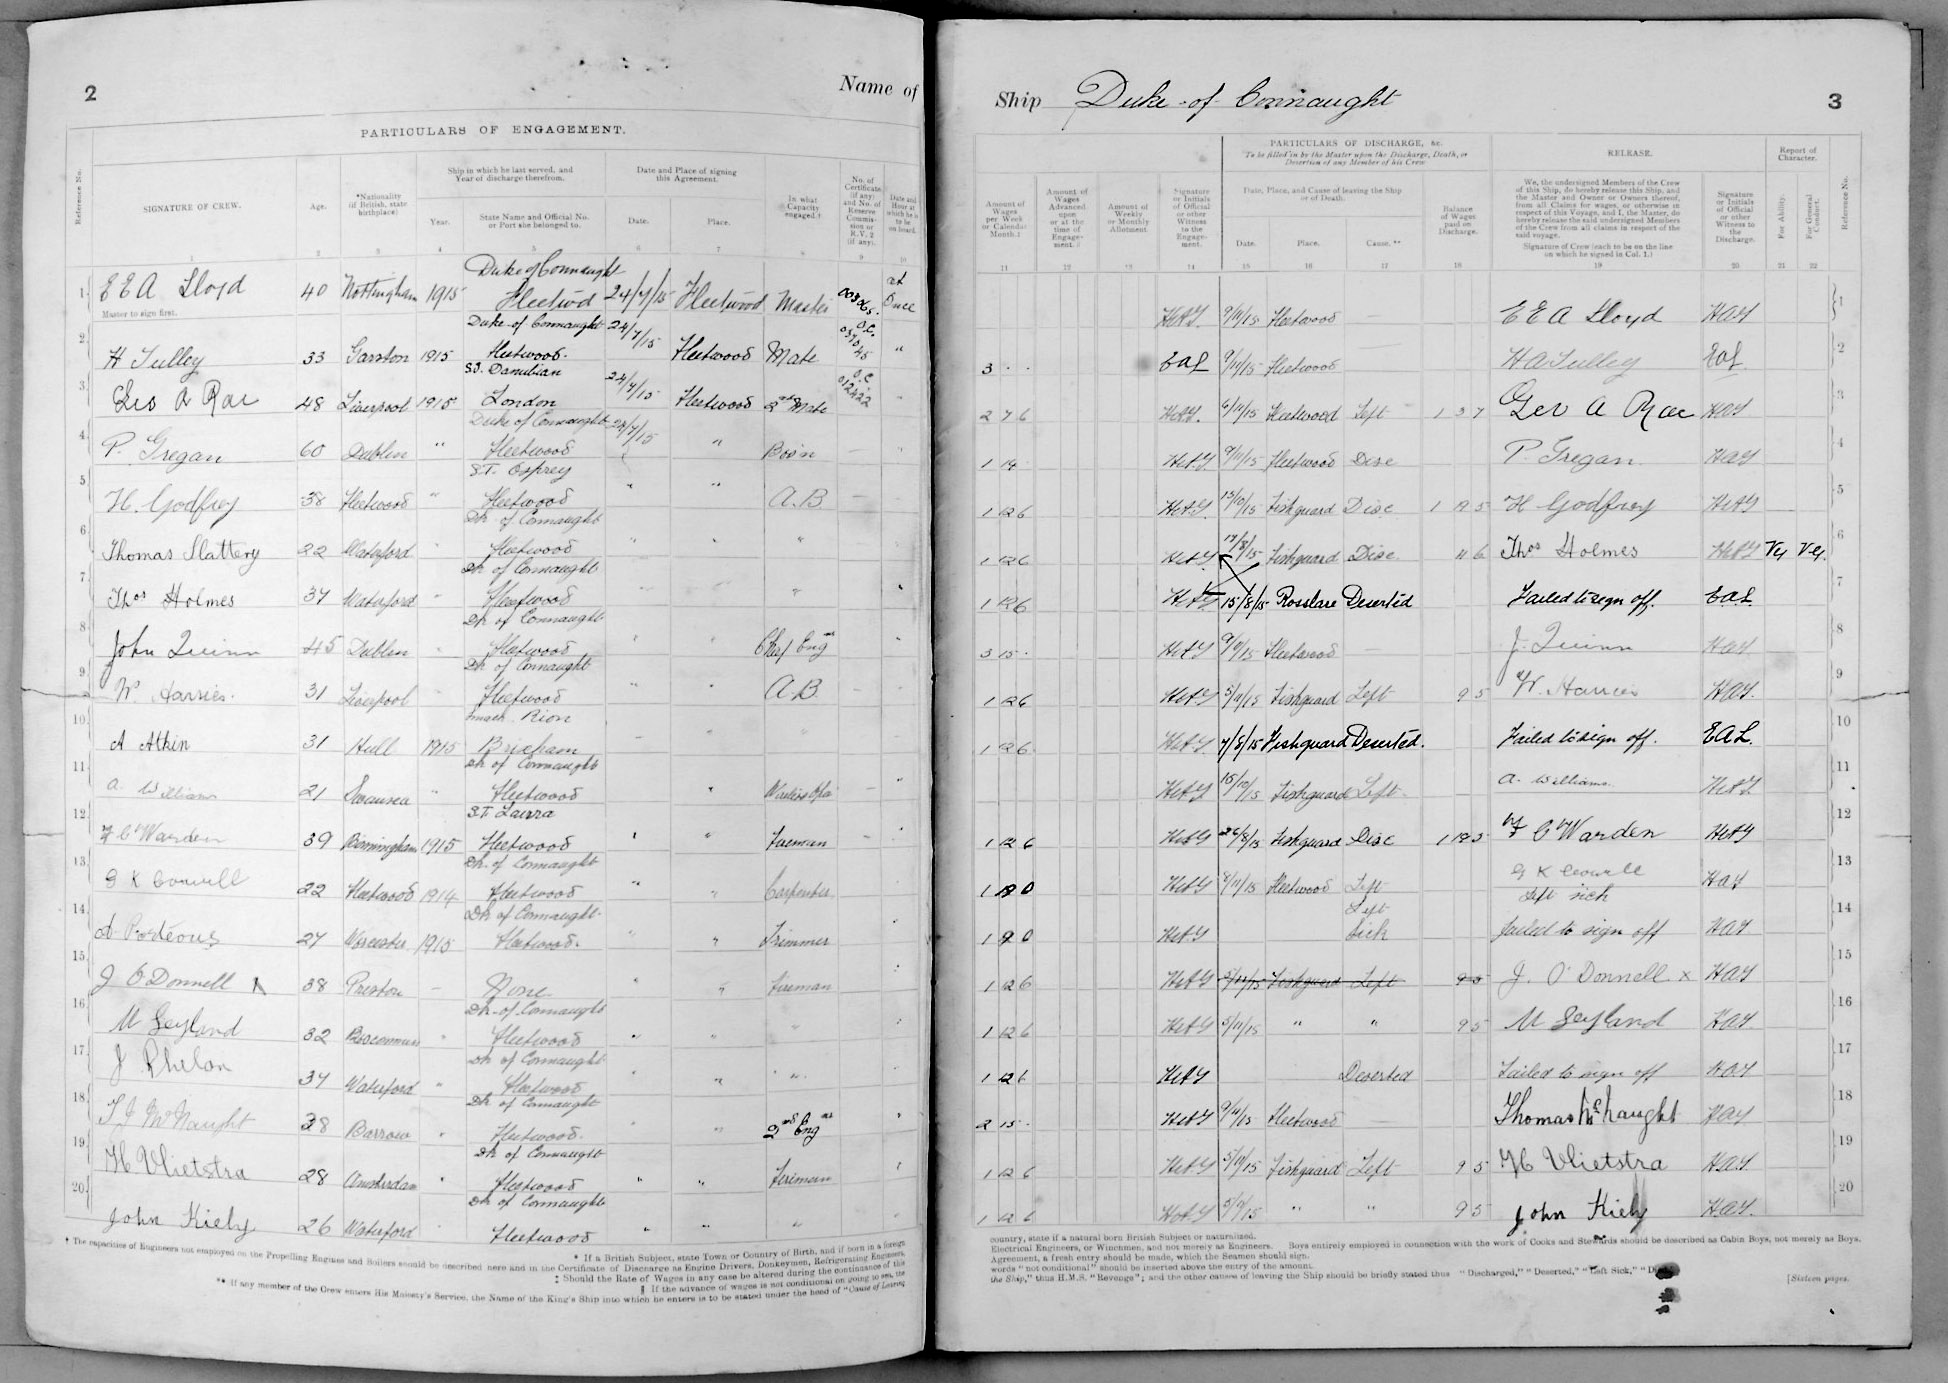 2
Name of
PARTICULARS OF ENGAGEMENT.
Reference No.
SIGNATURE OF CREW.
Age.
*Nationality (if British, state birthplace)
Ship in which he last served, and Year of discharge therefrom.
Year.
State Name and Official No. or Port she belonged to.
Date and Place of signing this Agreement.
Date.
Place.
In what Capacity engaged.†
No. of Certificate (if any) and No. of Reserve Commission or R.V. 2 (if any).
Date and Hour at which he is to be on board.
1 2 3 4 5 6 7 8 9 10
Duke of Connaught at
1 E E A Lloyd 40 Nottingham 1915 Fleetwood 24/7/15 Fleetwood Master Once
Master to sign first.
Duke of Connaught 24/7/15
2 H Tulley 33 Garston 1915 Fleetwood. Fleetwood Mate "
S.S. Danubian 24/7/15 O.C. 012222
3 Geo A Rae 48 Liverpool 1915 London Fleetwood 2nd Mate "
Duke of Connaught 24/7/15
4 P. Gregan 60 Dublin " Fleetwood " Bos'n — "
S.T. Osprey
5 H. Godfrey 38 Fleetwood " Fleetwood " " A.B —
Dk of Connaught
6 Thomas Slattery 22 Waterford " Fleetwood " " "
Dk of Connaught
7 Thos Holmes 37 Waterford " Fleetwood " "
Dk of Connaught
8 John Quinn 45 Dublin " Fleetwood " " Chief Engr "
Dk of Connaught
9 W. Harries. 31 Liverpool " Fleetwood " " A.B —
Smack. Rion
10 A Atkin 31 Hull 1915 Brixham " "
Dk of Connaught
11 A. Williams 21 Swansea " Fleetwood " Wireless Opr — "
S.T. Laura
12 F C Warden 39 Birmingham 1915 Fleetwood " " Fireman —
Dk. of Connaught
13 G K Cowell 22 Fleetwood 1914 Fleetwood " " Carpenter
Dk of Connaught.
14 A. Porteous 27 Worcester 1915 Fleetwood. " " Trimmer
15 J O'Donnell 38 Preston — None " " Fireman
Dk. of Connaught
16 M Leyland 32 Roscommon Fleetwood " " "
Dk of Connaught
17 J Phelan 37 Waterford " Fleetwood " " "
Dk of Connaught
18 T J McNaught 38 Barrow " Fleetwood. " " 2nd Engr "
Dk of Connaught
19 H Vlietstra 28 Amsterdam " Fleetwood " " Fireman
Dk of Connaught
20 John Kiely 26 Waterford " Fleetwood " " "
† The capacities of Engineers not employed on the Propelling Engines and Boilers should be described here and in the Certificate of Discharge as Engine Drivers, Donkeymen, Refrigerating Engineers,
* If a British Subject, state Town or Country of Birth, and if born in a foreign
‡ Should the Rate of Wages in any case be altered during the continuance of this
§ If the advance of wages is not conditional on going to sea, the
** If any member of the Crew enters His Majesty's Service, the Name of the King's Ship into which he enters is to be stated under the head of "Cause of Leaving
Ship Duke of Connaught
3
PARTICULARS OF DISCHARGE, &c.
To be filled in by the Master upon the Discharge, Death, or Desertion of any Member of his Crew
RELEASE.
Report of Character.
Amount of Wages per Week or Calendar Month.‡
Amount of Wages Advanced upon or at the time of Engagement.§
Amount of Weekly or Monthly Allotment.
Signature or Initials of Official or other Witness to the Engagement.
Date, Place, and Cause of leaving the Ship or of Death.
Date.
Place.
Cause.**
Balance of Wages paid on Discharge.
We, the undersigned Members of the Crew of this Ship, do hereby release this Ship, and the Master and Owner or Owners thereof, from all Claims for wages, or otherwise in respect of this Voyage, and I, the Master, do hereby release the said undersigned Members of the Crew from all claims in respect of the said voyage.
Signature of Crew (each to be on the line on which he signed in Col. 1.)
Signature or Initials of Official or other Witness to the Discharge.
For Ability.
For General Conduct.
Reference No.
11 12 13 14 15 16 17 18 19 20 21 22
HAY 9/11/15 Fleetwood — E E A Lloyd HAY 1
3 . . EAL 9/11/15 Fleetwood — H A Tulley EAL 2
2 7 6 HAY. 6/11/15 Fleetwood Left 1 3 7 Geo A Rae HAY 3
1 14 HAY 9/11/15 Fleetwood Disc P. Gregan. HAY 4
1 12 6 HAY. 15/10/15 Fishguard Disc 1 12 5 H Godfrey HAY 5
1 12 6 HAY 17/8/15 Fishguard Disc 4 6 Thos Holmes HAY VG VG. 6
1 12 6 HAY 15/8/15 Rosslare Deserted Failed to sign off. EAL 7
3 15 . HAY 9/11/15 Fleetwood — J. Quinn HAY 8
1 12 6 HAY 5/11/15 Fishguard Left 9 5 W. Harries HAY. 9
1 12 6 HAY. 7/8/15 Fishguard Deserted. Failed to sign off. EAL. 10
HAY 15/10/15 Fishguard Left. A. Williams. HAY 11
1 12 6 HAY 26/8/15 Fishguard Disc 1 12 5 F C Warden HAY 12
1 10 HAY 8/11/15 Fleetwood Left G K Cowell HAY 13
Left sick
Left
1 10 HAY Sick failed to sign off HAY 14
1 12 6 HAY 5/11/15 Fishguard Left 9 5 J. O'Donnell x HAY 15
1 12 6 HAY 5/11/15 " " 9 5 M Leyland HAY. 16
1 12 6 HAY Deserted Failed to sign off HAY 17
2 15 . HAY 9/11/15 Fleetwood — Thomas McNaught HAY 18
1 12 6 HAY 5/11/15 Fishguard Left 9 5 H Vlietstra HAY. 19
1 12 6 HAY 5/11/15 " " 9 5 John Kiely HAY. 20
country, state if a natural born British Subject or naturalized.
Electrical Engineers, or Winchmen, and not merely as Engineers. Boys entirely employed in connection with the work of Cooks and Stewards should be described as Cabin Boys, not merely as Boys.
Agreement, a fresh entry should be made, which the Seamen should sign.
words "not conditional" should be inserted above the entry of the amount.
the Ship," thus H.M.S. "Revenge"; and the other causes of leaving the Ship should be briefly stated thus "Discharged," "Deserted," "Left Sick,"
[Sixteen pages.